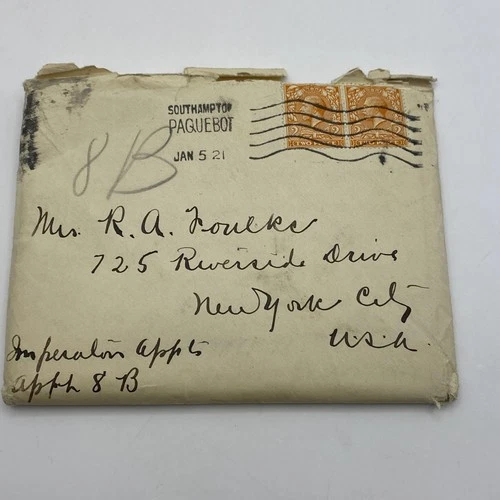 SOUTHAMPTON
PAQUEBOT
JAN 5 21
8 B
Mrs. R. A. Foulks
725 Riverside Drive
New York City
U.S.A.
Imperator Appts
Appt 8 B